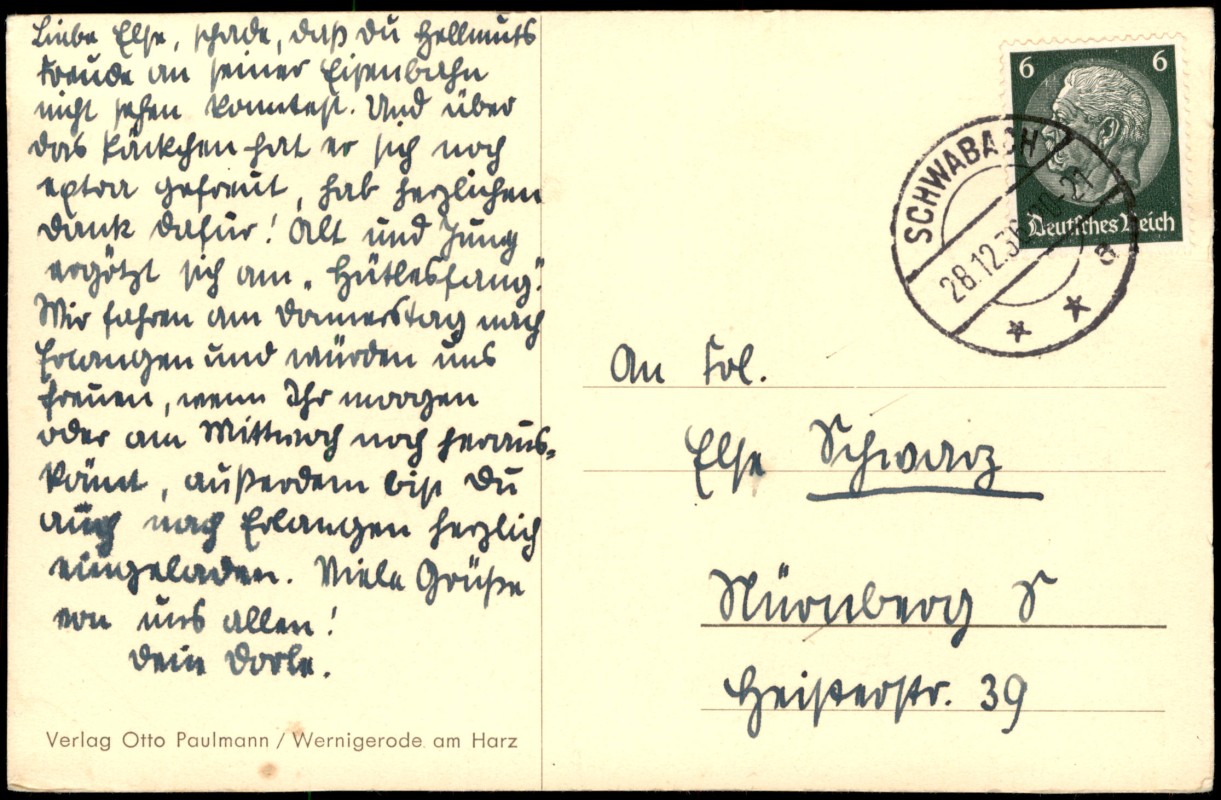 Liebe Else, schade, daß Du Hellmuts
Freude an seiner Eisenbahn
nicht sehen konntest. Und über
das Päckchen hat er sich noch
extra gefreut, hab herzlichen
Dank dafür! Alt und Jung
ergötzt sich am „Hütlesfang“.
Wir fahren am Donnerstag nach
Erlangen und würden uns
freuen, wenn Ihr morgen
oder am Mittwoch noch heraus-
könnt, außerdem bist Du
auch nach Erlangen herzlich
eingeladen. Viele Grüße
von uns allen!
Deine Dorle.
Verlag Otto Paulmann / Wernigerode am Harz
6 6
Deutsches Reich
SCHWABACH
28.12.36
a
An Frl.
Else Schwarz
Nürnberg S
Heisterstr. 39